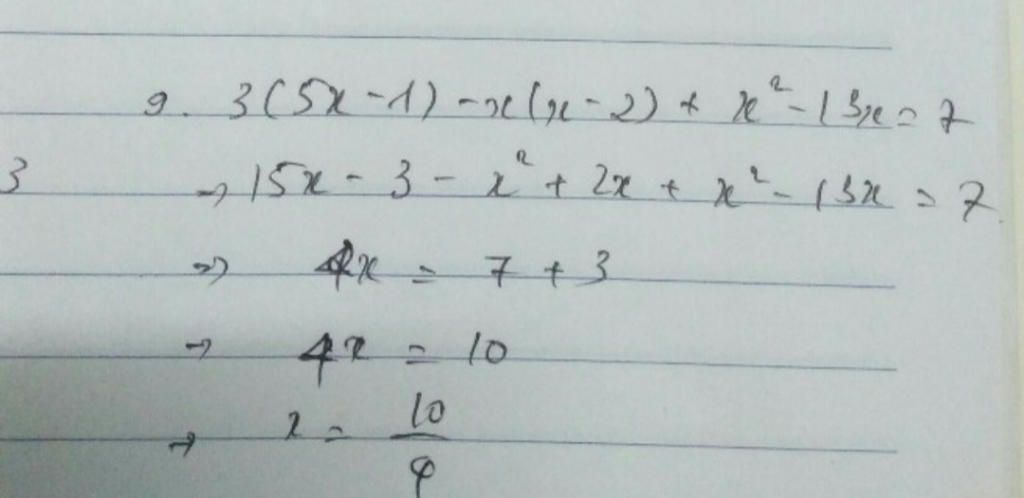 9. 3(5x-1) - x(x-2) + x² - 13x = 7
3 → 15x - 3 - x² + 2x + x² - 13x = 7
⇒ 4x = 7 + 3
→ 4x = 10
→ x = 10/4